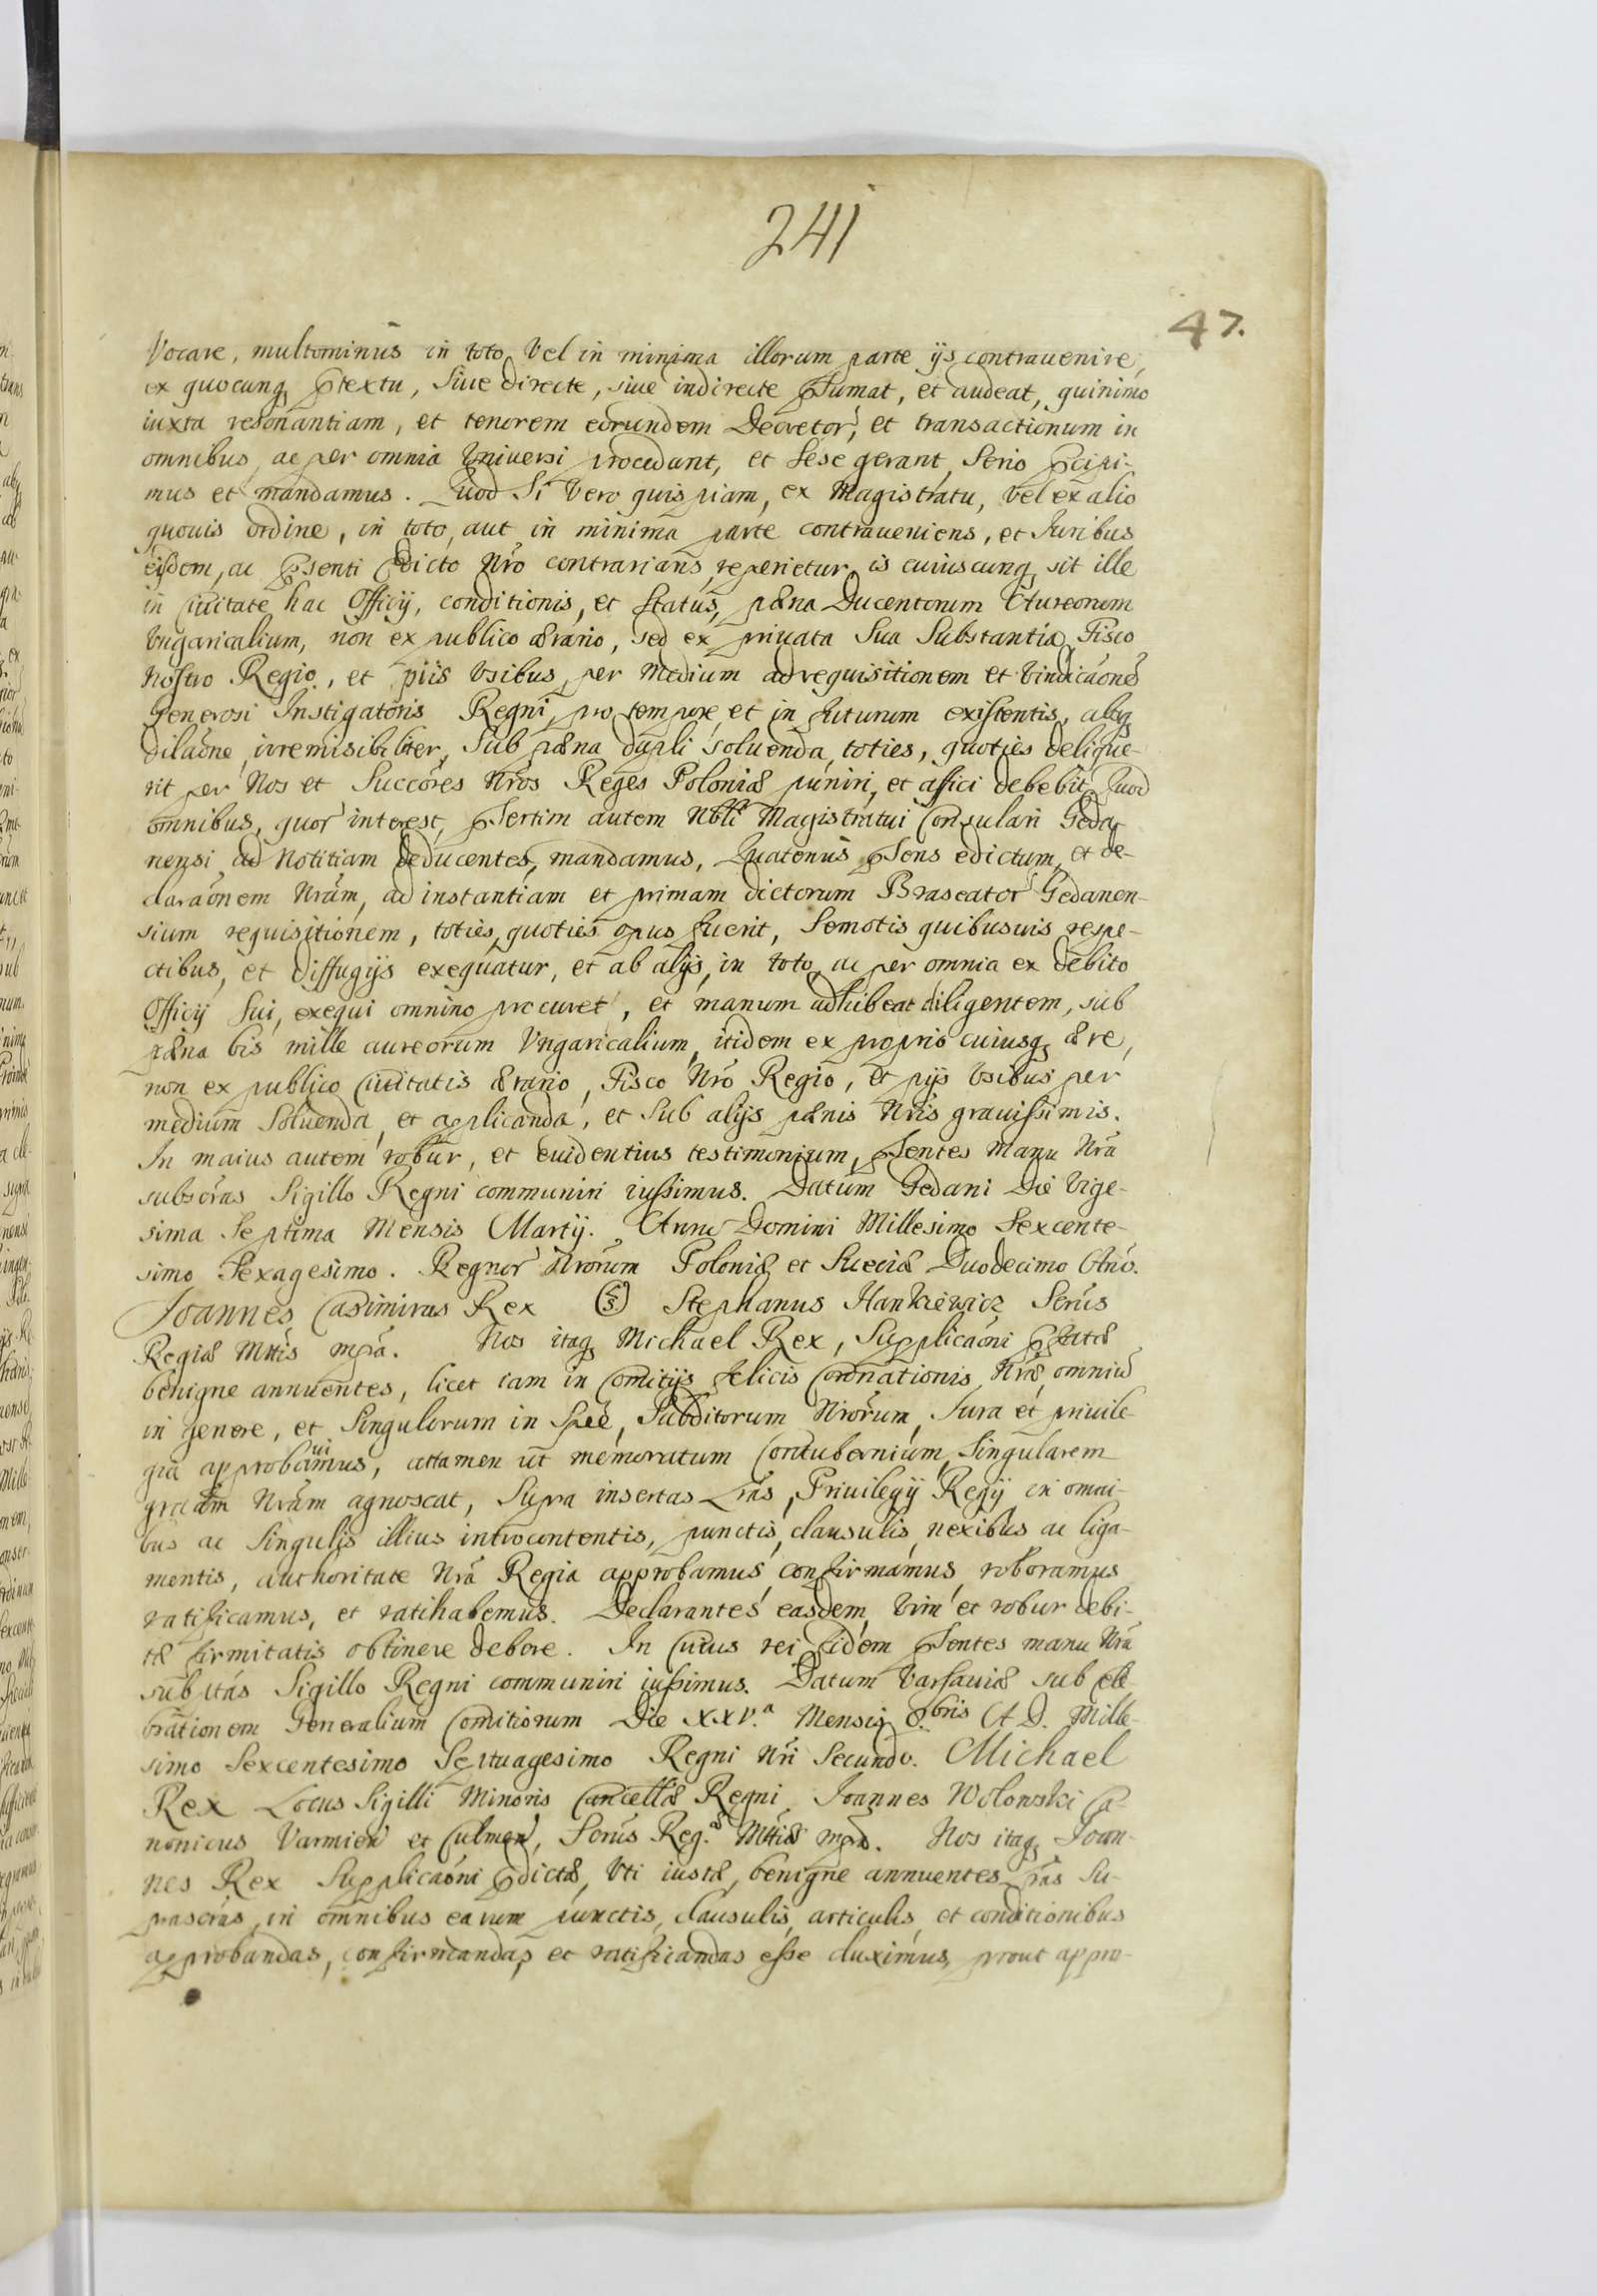 241
47.
Vocare, multominus in toto Vel in minima illorum parte ijs contrauenire,
ex quocunq ptextu, siue directe, siue indirecte psumat, et audeat, quinimo
iuxta resonantiam, et tenorem eorundem Decretor, et transactionum in
omnibus, ac per omnia Vniuersi procedant, et sese gerant, serio pcipi-
mus et mandamus. Quod Si Vero quispiam, ex Magistratu, vel ex alio
quouis ordine, in toto, aut in minima parte contraueniens, et Iuribus
eisdem, ac psenti Edicto Nro contrarians, reperietur, is cuiuscunq sit ille
in Ciuitate hac Officij, conditionis, et status, pæna Ducentorum Aureorum
Vngaricalium, non ex publico ærario, sed ex priuata Sua Substantia, Fisco
Nostro Regio, et piis Vsibus, per Medium ad requisitionem et Vindicaone
Generosi Instigatoris Regni, pro tempore et in futurum existentis, absq
dilaone, irremisibiliter, Sub pæna dupli soluenda, toties, quoties delique-
rit per Nos et Succores Nros Reges Poloniæ puniri, et affici debebit. Quod
omnibus, quor interest, psertim autem Nbli Magistratui Consulari Geda-
nensi ad Notitiam deducentes, mandamus, Quatenus psens edictum, et de-
claraonem Nram, ad instantiam et primam dictorum Braseator Gedanen-
sium requisitionem, toties, quoties opus fuerit, Semotis quibusuis respe-
ctibus, et diffugijs exequatur, et ab alijs, in toto, ac per omnia ex debito
Officij Sui, exequi omnino procuret, et manum adhibeat diligentem, sub
pæna bis mille aureorum Vngaricalium, itidem ex proprio cuiusq ære,
non ex publico Ciuitatis ærario, Fisco Nro Regio, et pijs Vsibus per
medium Soluenda, et applicanda, et Sub alijs pænis Nris grauissimis.
In maius autem robur, et euidentius testimonium, psentes Manu Nra
subscras Sigillo Regni communiri iussimus. Datum Gedani Die Vige-
sima Septima Mensis Martij. Anno Domini Millesimo Sexcente-
simo Sexagesimo. Regnor Nrorum Poloniæ et Sueciæ Duodecimo Ano.
Joannes Casimirus Rex (LS) Stephanus Hankiewicz Serus
Regiæ Mttis mpa. Nos itaq Michael Rex, Supplicaoni pfatæ
benigne annuentes, licet iam in Comitijs felicis Coronationis Nræ, omniu
in genere, et Singulorum in spee, Subditorum Nrorum, Iura et priuile-
gia approbauimus, attamen ut memoratum Contubernium, Singularem
graam Nram agnoscat, Supra insertas Lras, Priuilegij Regij in omni-
bus ac Singulis illius introcontentis, punctis, clausulis, nexibus ac liga-
mentis, authoritate Nra Regia approbamus, confirmamus, roboramus
ratificamus, et ratihabemus. Declarantes easdem Vim et robur debi-
tæ firmitatis obtinere debere. In Cuius rei fidem psentes manu Nra
sub itas Sigillo Regni communiri iussimus. Datum Varsauiæ sub cele-
brationem Generalium Comitiorum Die XXV.a Mensis 8.bris A. D. Mille-
simo Sexcentesimo Septuagesimo Regni Nri Secundo. Michael
Rex Locus Sigilli Minoris Cancellæ Regni Joannes Wolowski Ca-
nonicus Varmien et Culmen, Serus Reg.æ Mttis mpa. Nos itaq Joan-
nes Rex Supplicaoni pdictæ, Vti iustæ, benigne annuentes Lras Su-
prascras, in omnibus earum punctis, clausulis, articulis, et conditionibus
approbandas, confirmandas, et ratificandas esse duximus, prout appro-